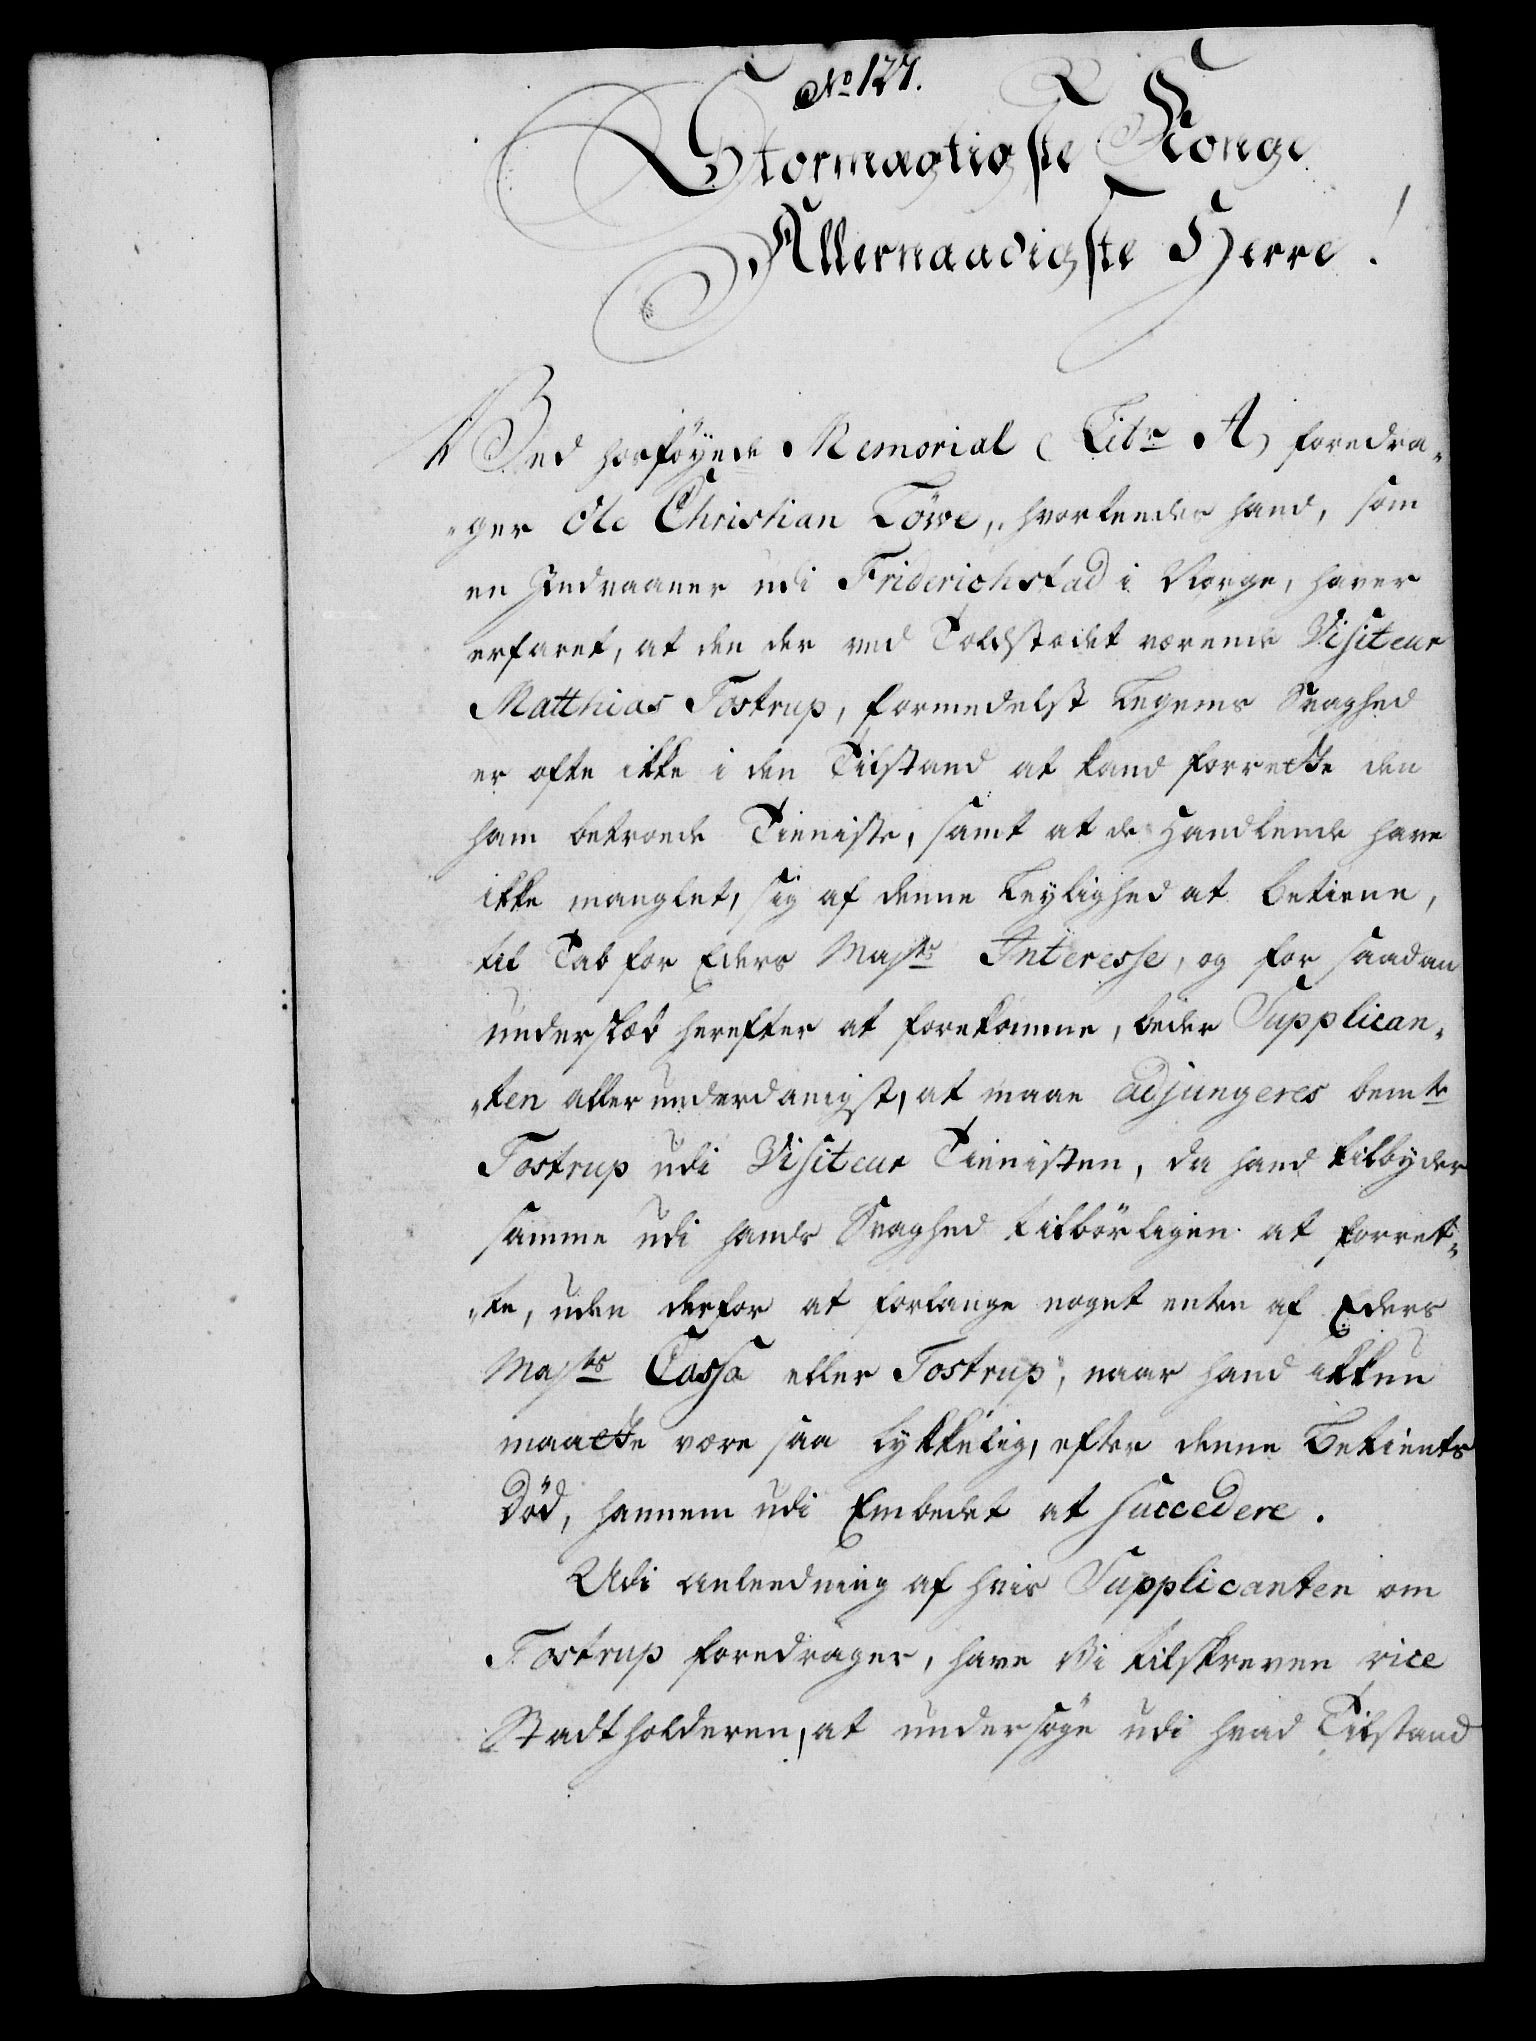 No 127.
Stormægtigste Konge
Allernaadigste Herre!
Ved hosføyede Memorial (Litr A) foredra-
-ger Ole Christian Löwe, hvorledes hand, som
en Indvaaner udi Friderichstad i Norge, haver
erfaret, at den der ved Toldstedet værende Visiteur
Matthias Tostrup, formedelst Legems Svaghed
er ofte ikke i den Tilstand at kand forrette den
ham betroede Tieniste, samt at de Handlende have
ikke manglet, sig af denne Leylighed at betiene,
til Tab for Eders Majts Interesse, og for saadan
underslæb herefter at forekomme, beder Supplican-
-ten allerunderdanigst, at maae adjungeres bemte
Tostrup udi Visiteur Tienisten, da hand tilbyder
samme udi hands Svaghed tilbörligen at forret-
-te, uden derfor at forlange noget enten af Eders
Majts Cassa eller Tostrup, naar hand ikkun
maatte være saa lykkelig, efter denne Betients
Död, hannem udi Embedet at succedere.
Udi anledning af hvis Supplicanten om
Tostrup foredrager, have Vi tilskreven vice
Stadtholderen, at undersöge udi hvad Tilstand